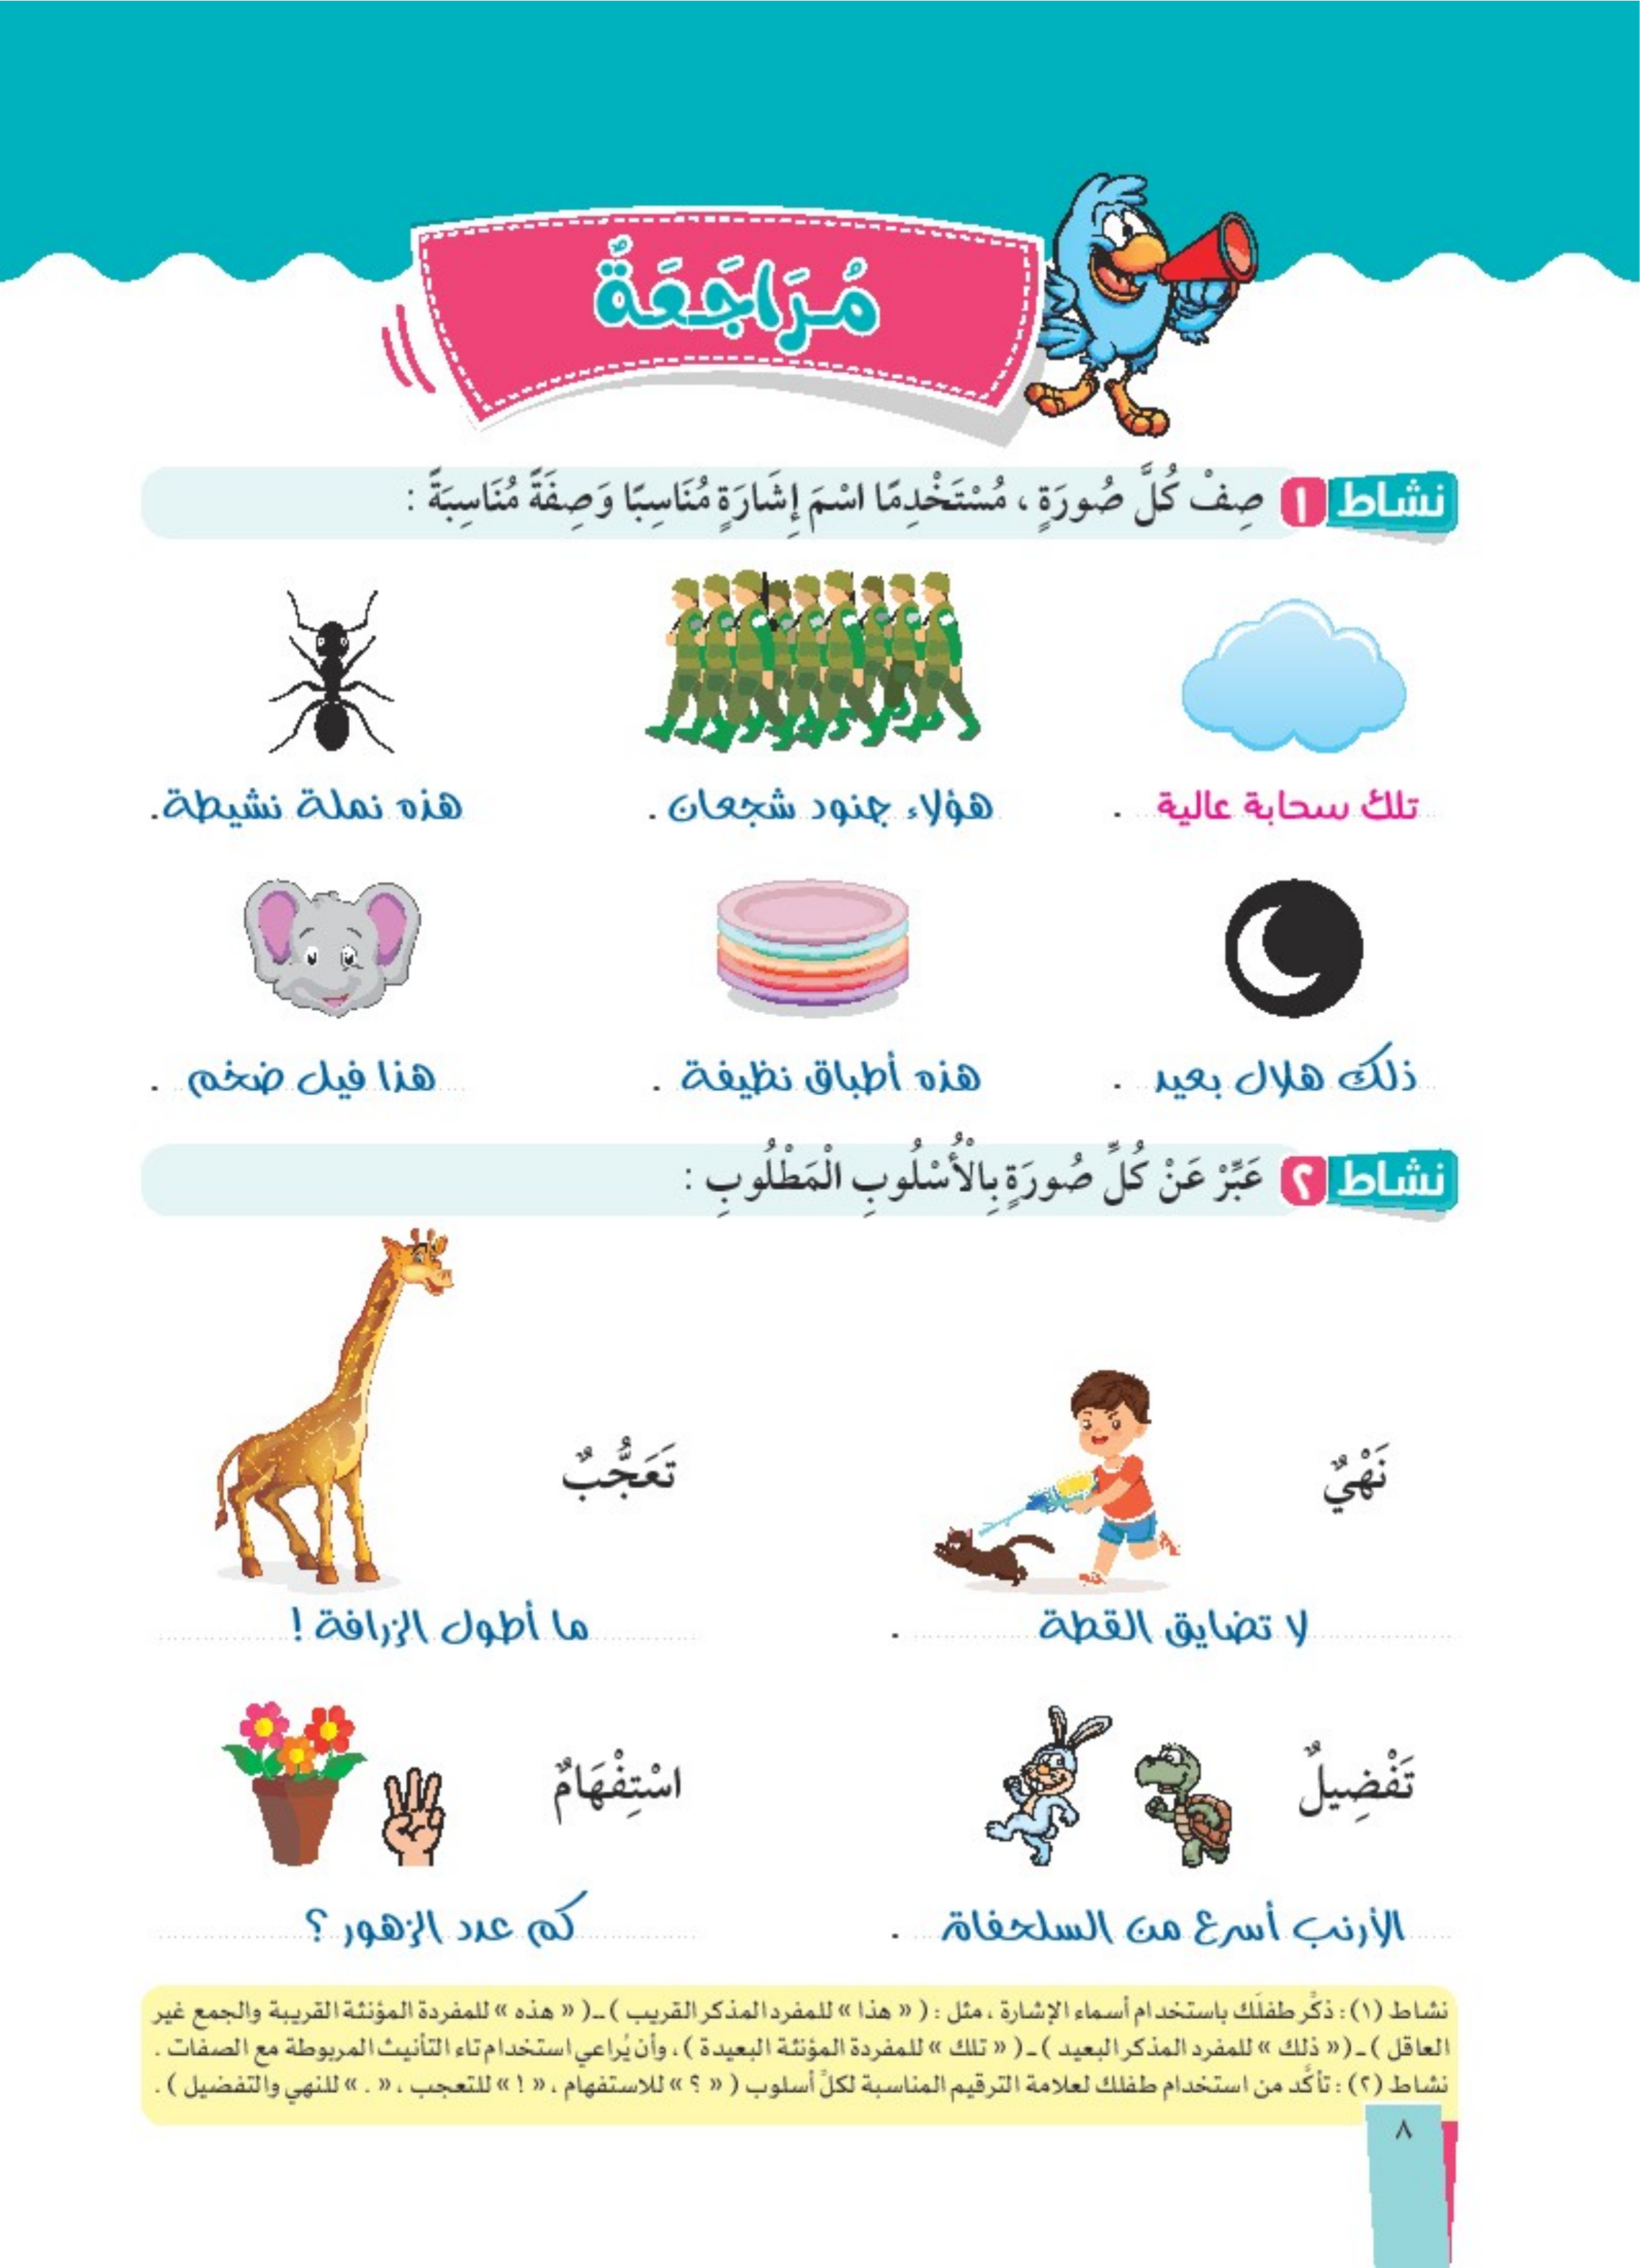 مُرَاجَعَةٌ
نشاط ١ صِفْ كُلَّ صُورَةٍ ، مُسْتَخْدِمًا اسْمَ إِشَارَةٍ مُنَاسِبًا وَصِفَةً مُنَاسِبَةً :
تلك سحابة عالية .
هؤلاء جنود شجعان .
هذه نملة نشيطة .
ذلك هلال بعيد .
هذه أطباق نظيفة .
هذا فيل ضخم .
نشاط ٢ عَبِّرْ عَنْ كُلِّ صُورَةٍ بِالْأُسْلُوبِ الْمَطْلُوبِ :
نَهْيٌ
تَعَجُّبٌ
لا تضايق القطة .
ما أطول الزرافة !
تَفْضِيلٌ
اسْتِفْهَامٌ
الأرنب أسرع من السلحفاة .
كم عدد الزهور ؟
نشاط (١) : ذكّر طفلَك باستخدام أسماء الإشارة ، مثل : ( « هذا » للمفرد المذكر القريب ) ـ ( « هذه » للمفردة المؤنثة القريبة والجمع غير
العاقل ) ـ ( « ذلك » للمفرد المذكر البعيد ) ـ ( « تلك » للمفردة المؤنثة البعيدة ) ، وأن يُراعي استخدام تاء التأنيث المربوطة مع الصفات .
نشاط (٢) : تأكَّد من استخدام طفلك لعلامة الترقيم المناسبة لكلِّ أسلوب ( « ؟ » للاستفهام ، « ! » للتعجب ، « . » للنهي والتفضيل ) .
٨